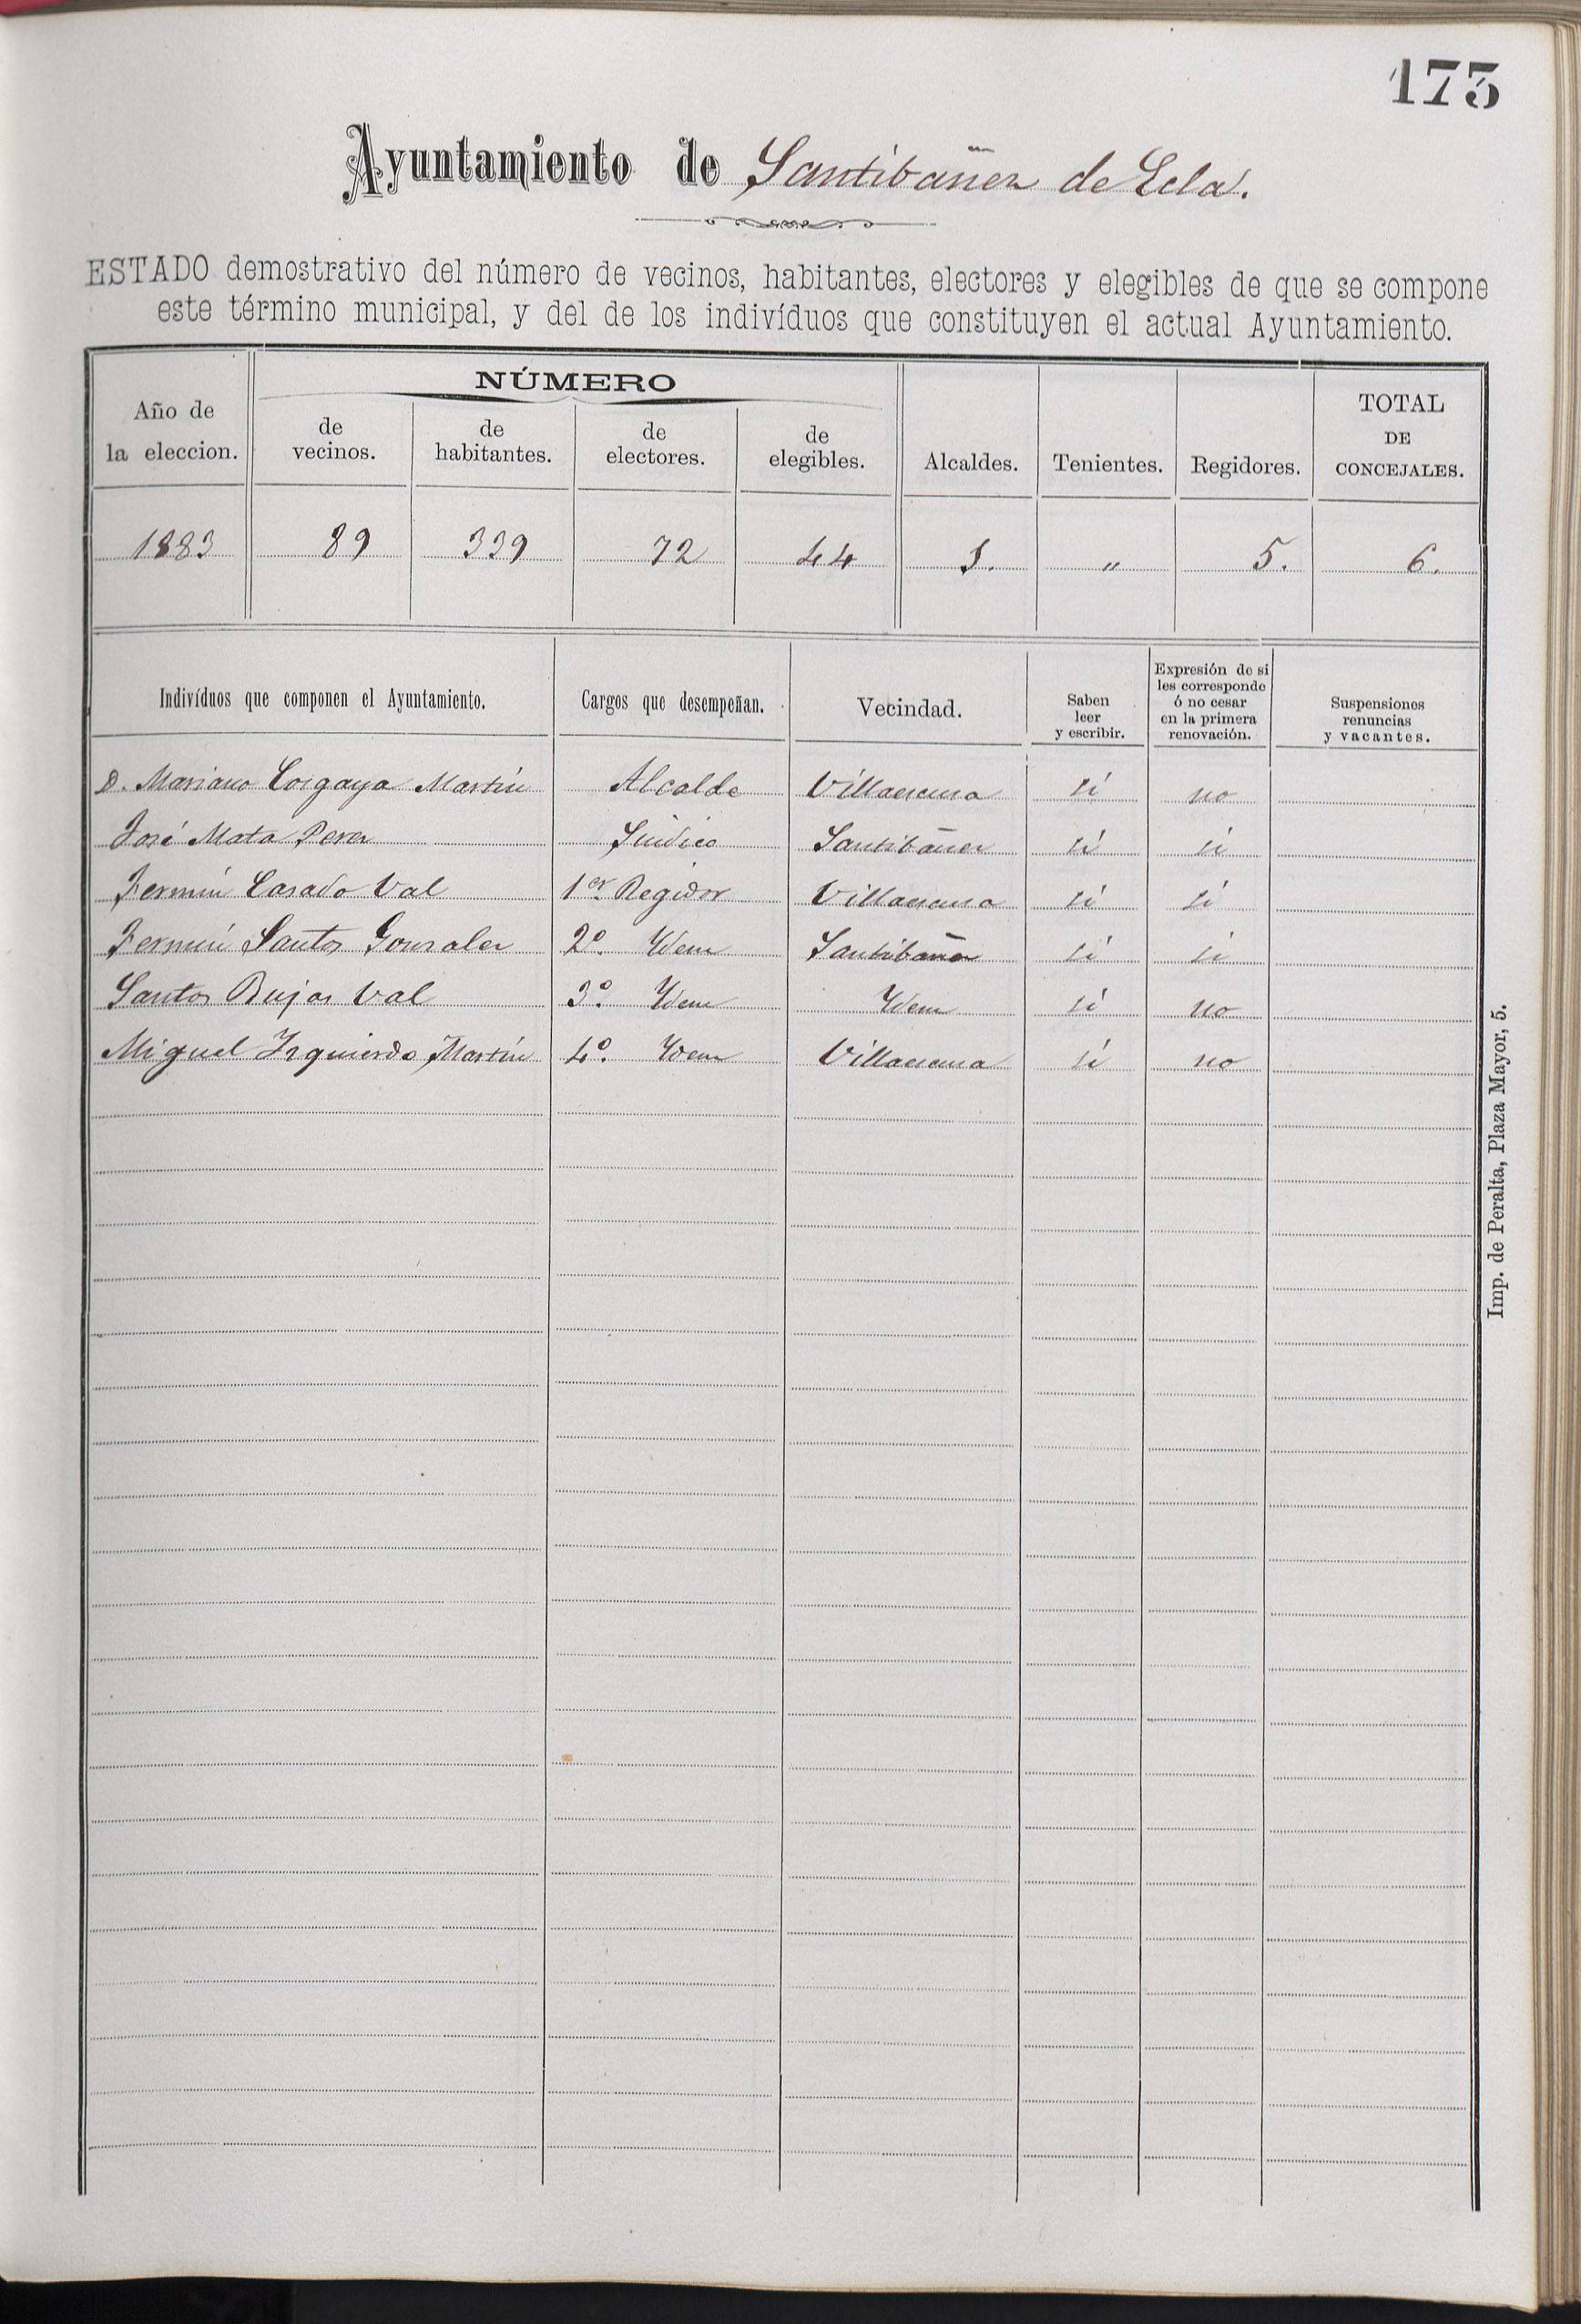 173
Ayuntamiento de Santibañez de Ecla.
ESTADO demostrativo del número de vecinos, habitantes, electores y elegibles de que se compone
este término municipal, y del de los indivíduos que constituyen el actual Ayuntamiento.
Año de la eleccion. NÚMERO de vecinos. de habitantes. de electores. de elegibles. Alcaldes. Tenientes. Regidores. TOTAL DE CONCEJALES.
1883 89 339 72 44 1. " 5. 6.
Indivíduos que componen el Ayuntamiento. Cargos que desempeñan. Vecindad. Saben leer y escribir. Expresión de si les corresponde ó no cesar en la primera renovación. Suspensiones renuncias y vacantes.
D. Mariano Martín Alcalde Villaescusa sí no
José Mata Perez Síndico Santibáñez sí sí
Fermín Casado Val 1er Regidor Villaescusa sí sí
Fermín Santos Gonzalez 2º. Idem Santibañez sí sí
Santos Val 3º. Idem Idem sí no
Miguel Izquierdo Martín 4º. Idem Villaescusa sí no
Imp. de Peralta, Plaza Mayor, 5.